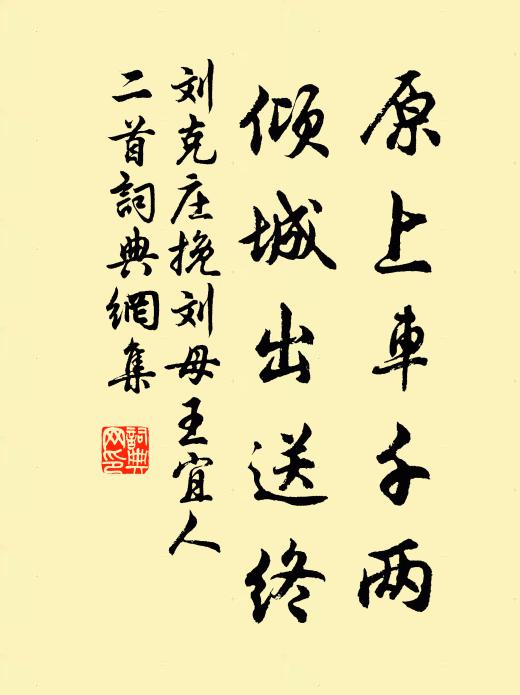 原上車千两
傾城出送终
刘克庄挽刘母王宜人
二首詞典網集
詞典网印